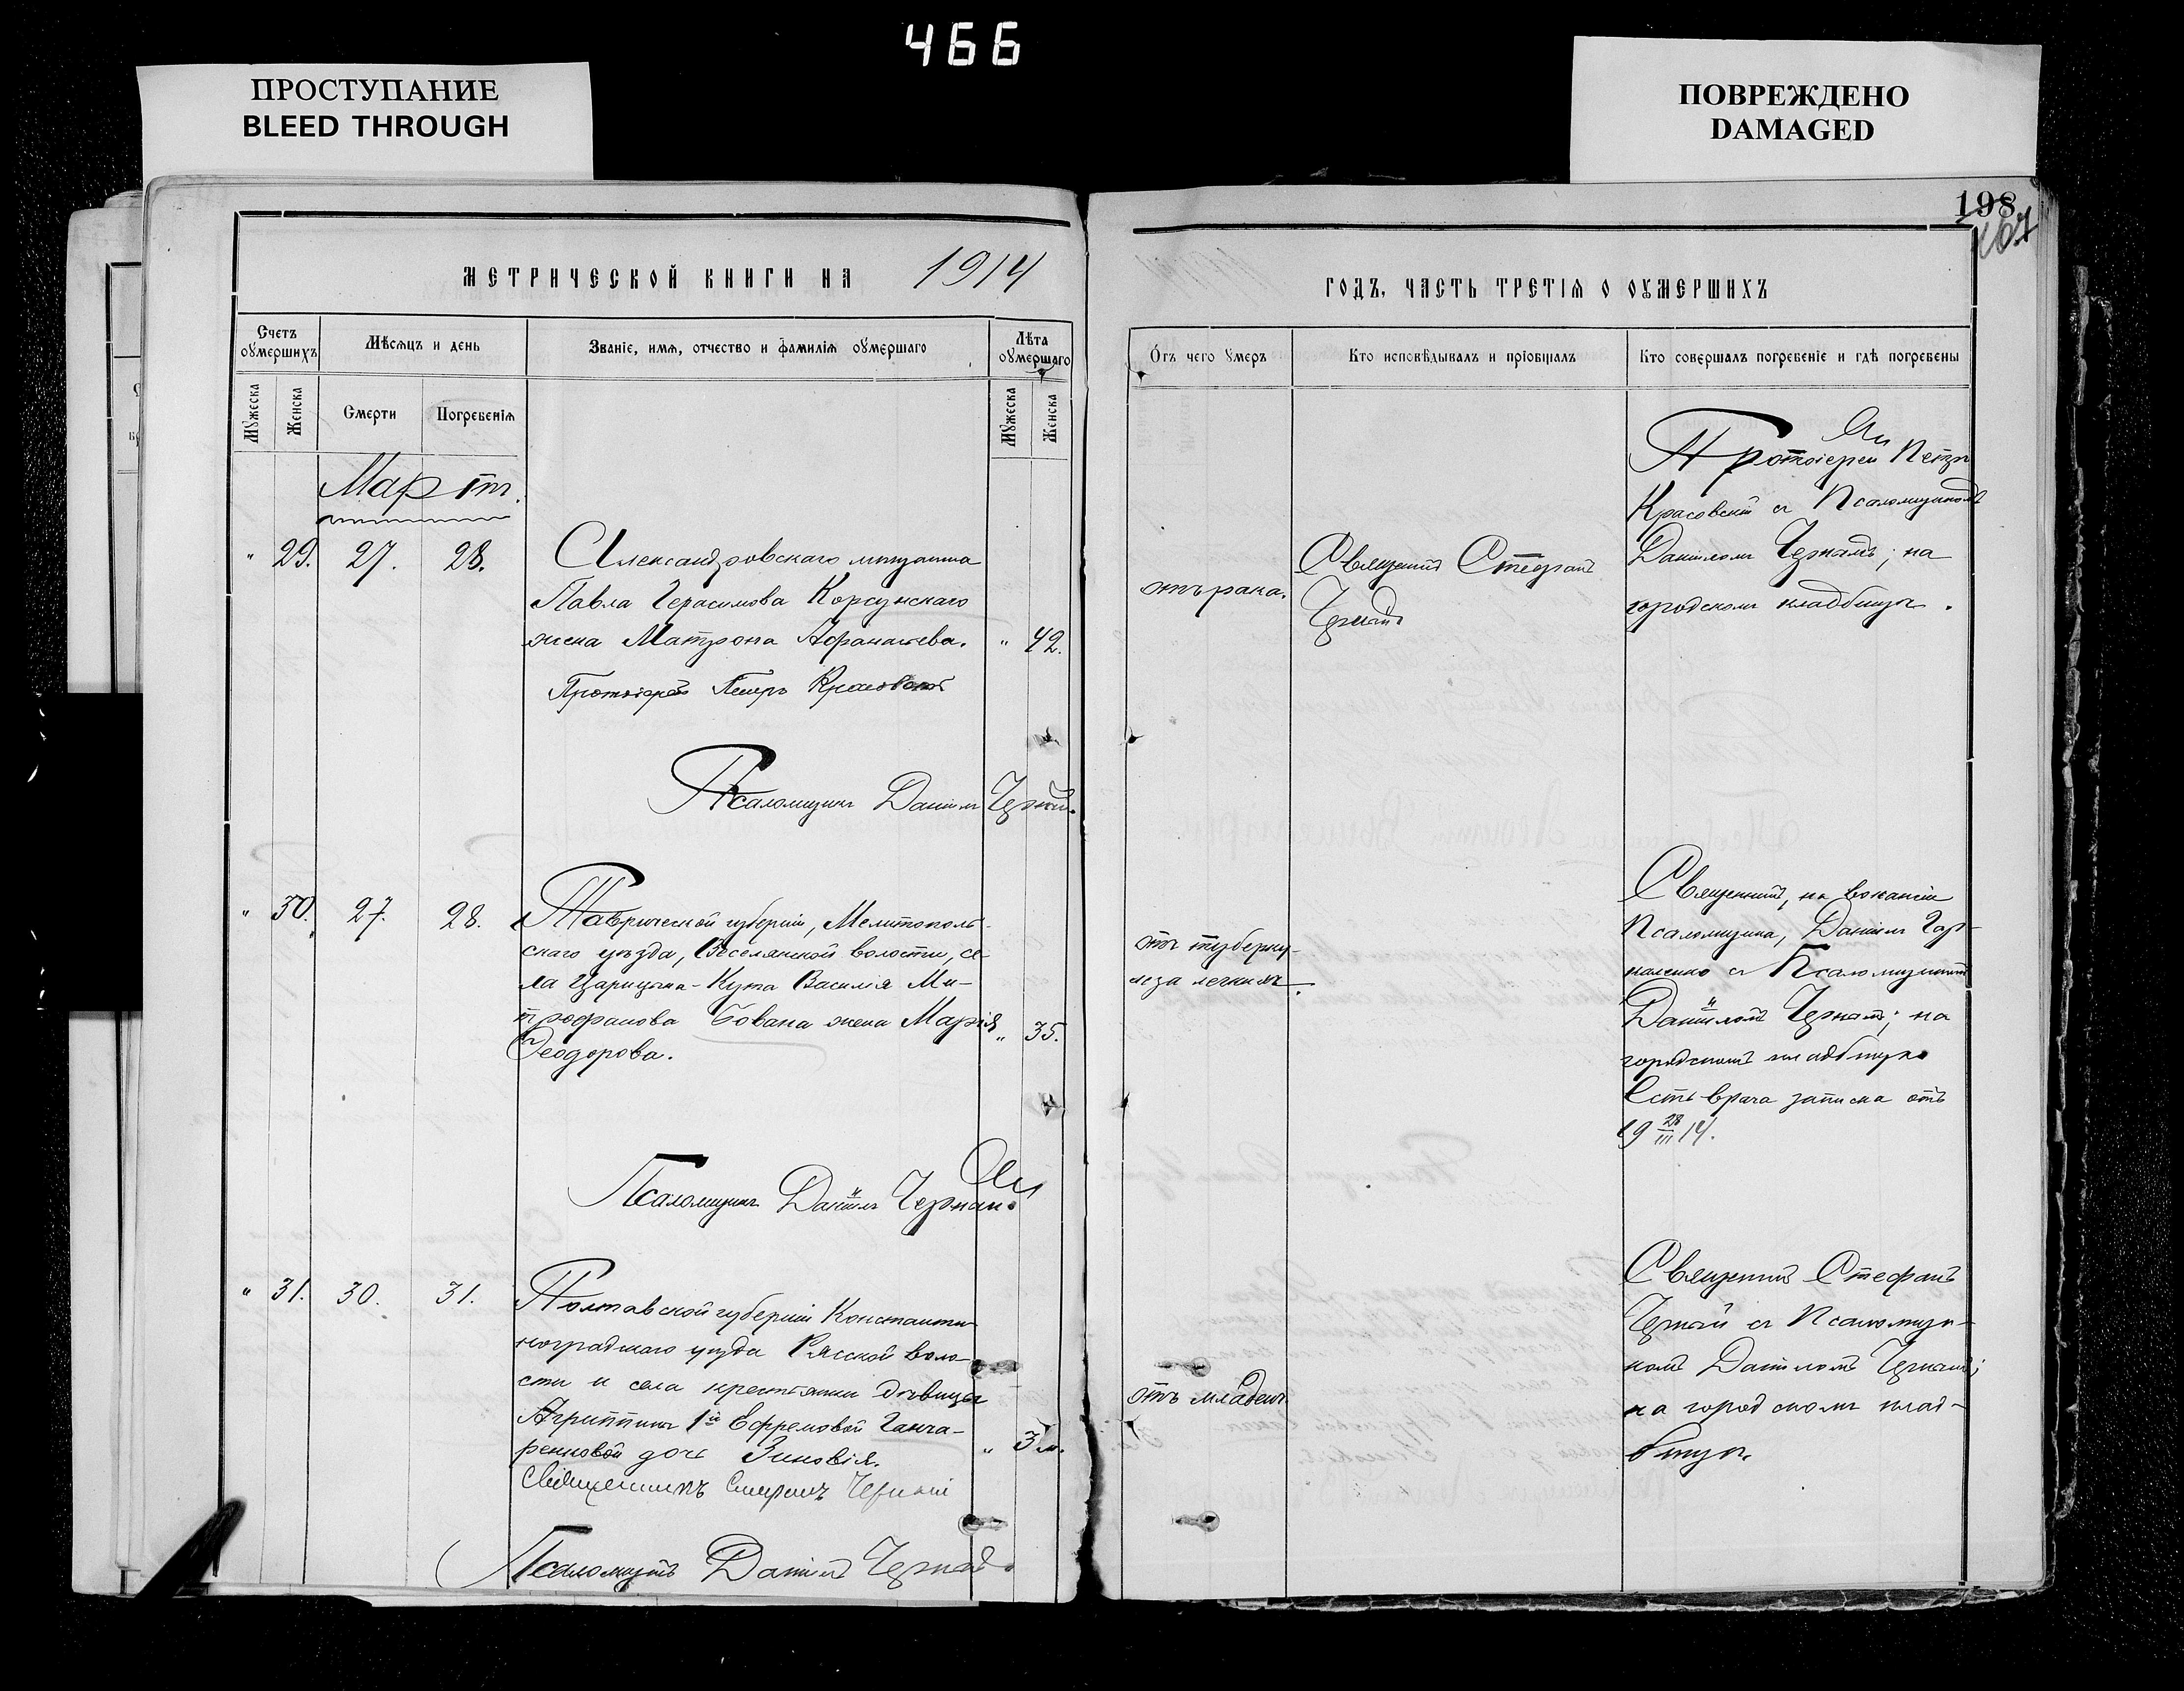 466
ПРОСТУПАНИЕ
BLEED THROUGH
ПОВРЕЖДЕНО
DAMAGED
198
167
МЕТРИЧЕСКОЙ КНИГИ НА 1914
Счетъ оумершихъ
Мѣсяцъ и день
Званіе, имя, отчество и фамилія оумершаго
Лѣта оумершаго
Мужеска
Женска
Смерти
Погребенія
Мужеска
Женска
Мартъ.
" 29. 27. 28.
Александровскаго мѣщанина
Павла Герасимова Корсунскаго
жена Матрона Афанасьева. " 42.
Протоіерей Петръ Красовскій
Псаломщикъ Даніилъ Черный.
" 30. 27. 28.
Таврической губерніи, Мелитополь-
скаго уѣзда, Веселянской волости, се-
ла Царицына-Кута Василія Ми-
трофанова Бована жена Марія " 35.
Ѳеодорова.
Псаломщикъ Даніилъ Черный
" 31. 30. 31.
Полтавской губерніи Константи-
ноградскаго уѣзда Рясской воло-
сти и села крестьянки дѣвицы
Агриппины 1й Ефремовой Ганча-
ренковой дочь Зиновія. " 3 м.
Священникъ Стефанъ Черный
Псаломщикъ Даніилъ Черный
ГОДЪ, ЧАСТЬ ТРЕТІЯ О ОУМЕРШИХЪ
Отъ чего умеръ
Кто исповѣдывалъ и пріобщалъ
Кто совершалъ погребеніе и гдѣ погребены
отъ рака.
Священникъ Стефанъ
Черный
Протоіерей Петръ
Красовскій съ Псаломщикомъ
Данiиломъ Чернымъ; на
городскомъ кладбищѣ.
отъ туберку-
леза легкихъ.
Священникъ, на вакансіи
Псаломщика, Даніилъ
съ Псаломщикомъ
Даніиломъ Чернымъ; на
городскомъ кладбищѣ
Есть врача записка отъ
19 28/III 14.
отъ младен.
Священникъ Стефанъ
Черный съ Псаломщи-
комъ Даніиломъ Чернымъ;
на городскомъ клад-
бищѣ.